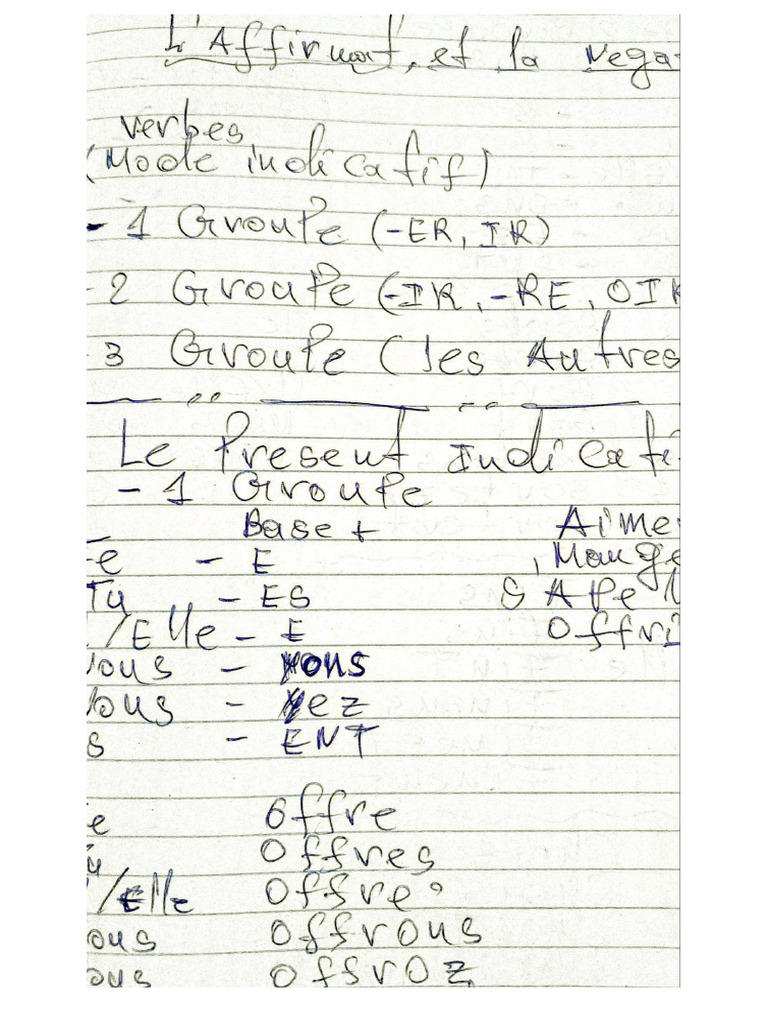 L'Affirmat. et la Nega
verbes
(Mode indicatif)
- 1 Groupe (-ER, IR)
- 2 Groupe (-IR, -RE, OIR
- 3 Groupe (les Autres
Le Present Indicati
- 1 Groupe
Base + Aime
e - E , Mange
Tu - ES
/Elle - E Offri
ous - ons
ous - ez
s - ENT
e Offre
u Offres
/Elle Offre
ous Offrons
ous Offroz